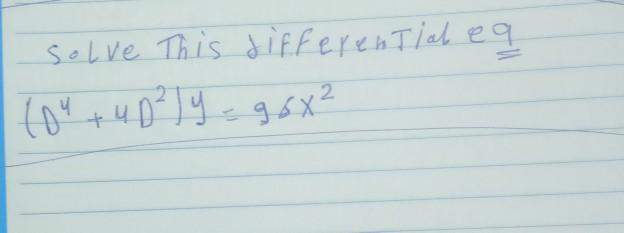 Solve This differenTial eq
(D⁴ + 4D²)y = 96x²